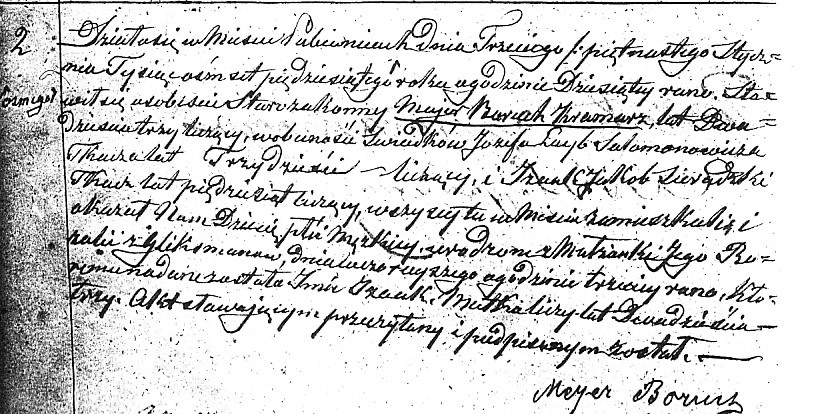 2 Działo się w Mieście Pabianicach dnia Trzeciego /: piętnastego Stycz=
nia Tysiąc ośmset pięćdziesiątego roku o godzinie Dziesiąty rano. Sta=
wił się osobiście Starozakonny Majer Boruch Kramarz, lat Dwa=
dzieścia trzy liczący, w obecności Świadków Józefa Layb Salomonowicza
Tkacza lat Trzydzieści liczący, i Izaak Jakob Sieradzki
Tkacz lat pięćdziesiąt liczący, wszyscy tu w Mieście zamieszkali, i
okazał Nam Dziecię płci Męzkiey, urodzone z Małżonki Jego Ro=
zalii z Gliksmanów, dnia wczorayszego o godzinie trzeciy rano, Któ=
remu nadane zostało Imie Izaak. Matka liczy lat Dwadzieścia
trzy. Akt stawaiącym przeczytany i podpisanym został.
Meyer Boruch